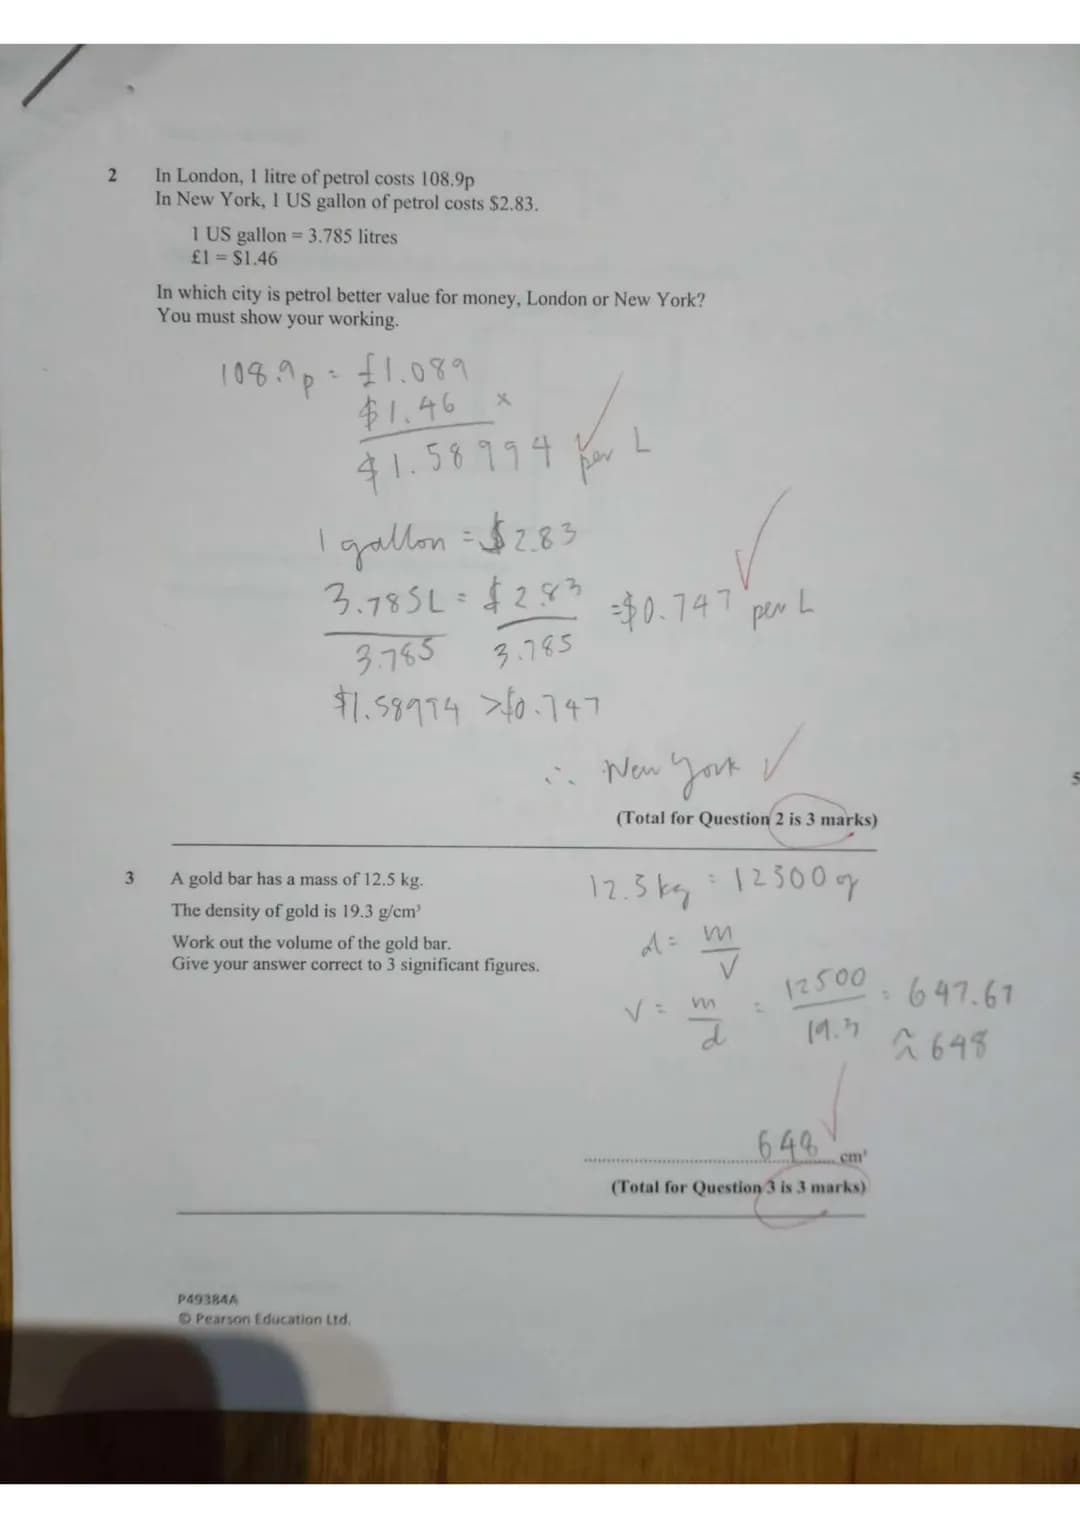 2 In London, 1 litre of petrol costs 108.9p
In New York, 1 US gallon of petrol costs $2.83.
1 US gallon = 3.785 litres
£1 = $1.46
In which city is petrol better value for money, London or New York?
You must show your working.
108.9p = £1.089
$1.46 ×
$1.58994 per L
1 gallon = $2.83
3.785L = $2.83 = $0.747 per L
3.785 3.785
$1.58994 > $0.747
∴ New York
(Total for Question 2 is 3 marks)
3 A gold bar has a mass of 12.5 kg.
12.5kg = 12500g
The density of gold is 19.3 g/cm³
d = m
V
Work out the volume of the gold bar.
Give your answer correct to 3 significant figures.
V = m = 12500 = 647.67
d 19.3 ≈ 648
648 cm³
(Total for Question 3 is 3 marks)
P49384A
© Pearson Education Ltd.
5